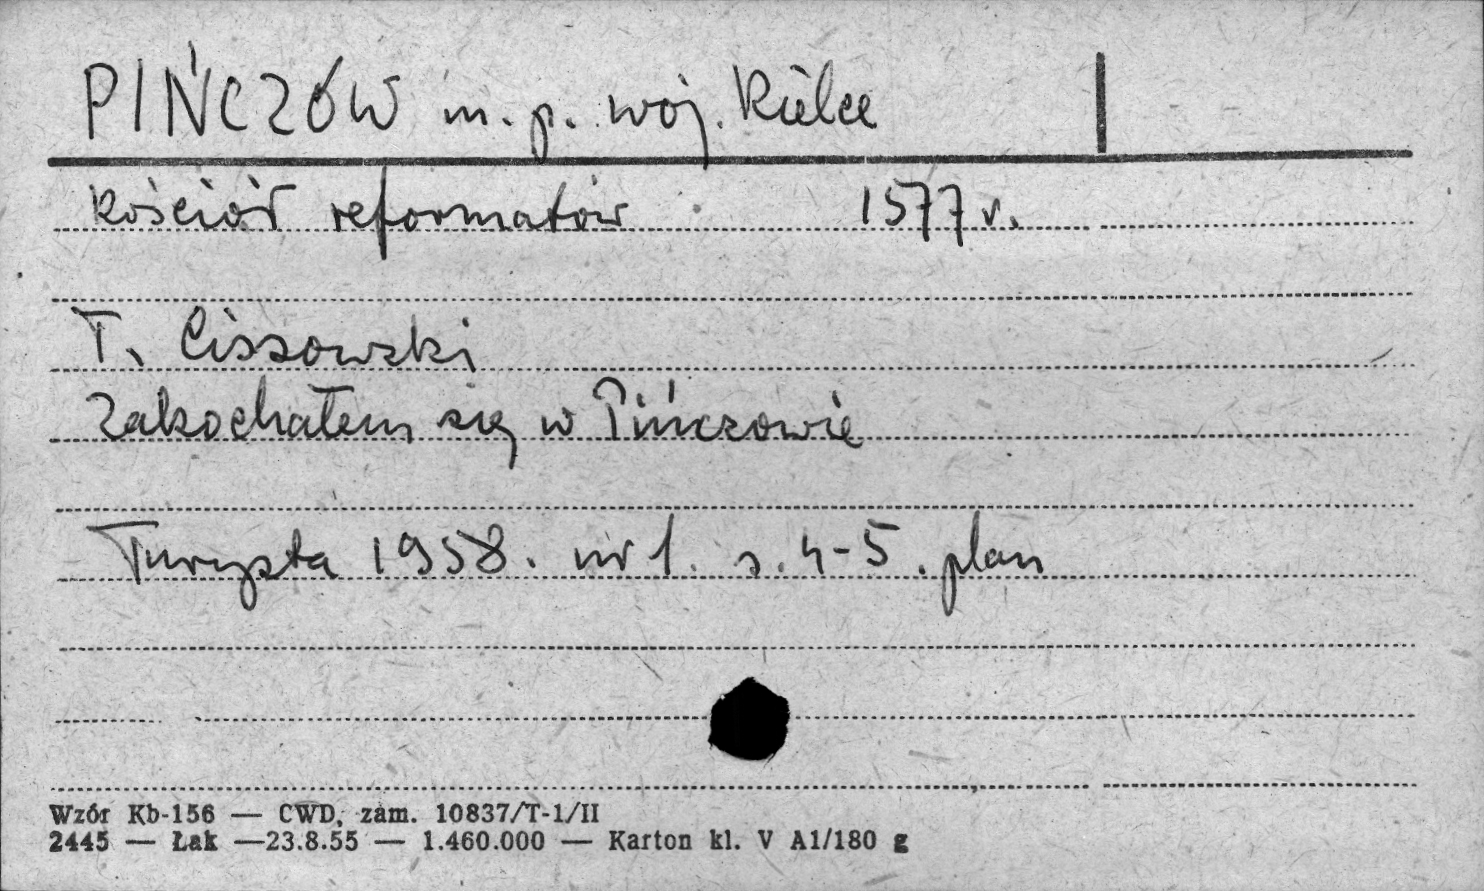 PIŃCZÓW m. p. woj. Kielce
Kościół reformatów 1577 r.
T. Cissowski
Zakochałem się w Pińczowie
Turysta 1958. nr 1. s. 4-5. plan
Wzór Kb-156 — CWD, zam. 10837/T-1/II
2445 — Łak —23.8.55 — 1.460.000 — Karton kl. V A1/180 g